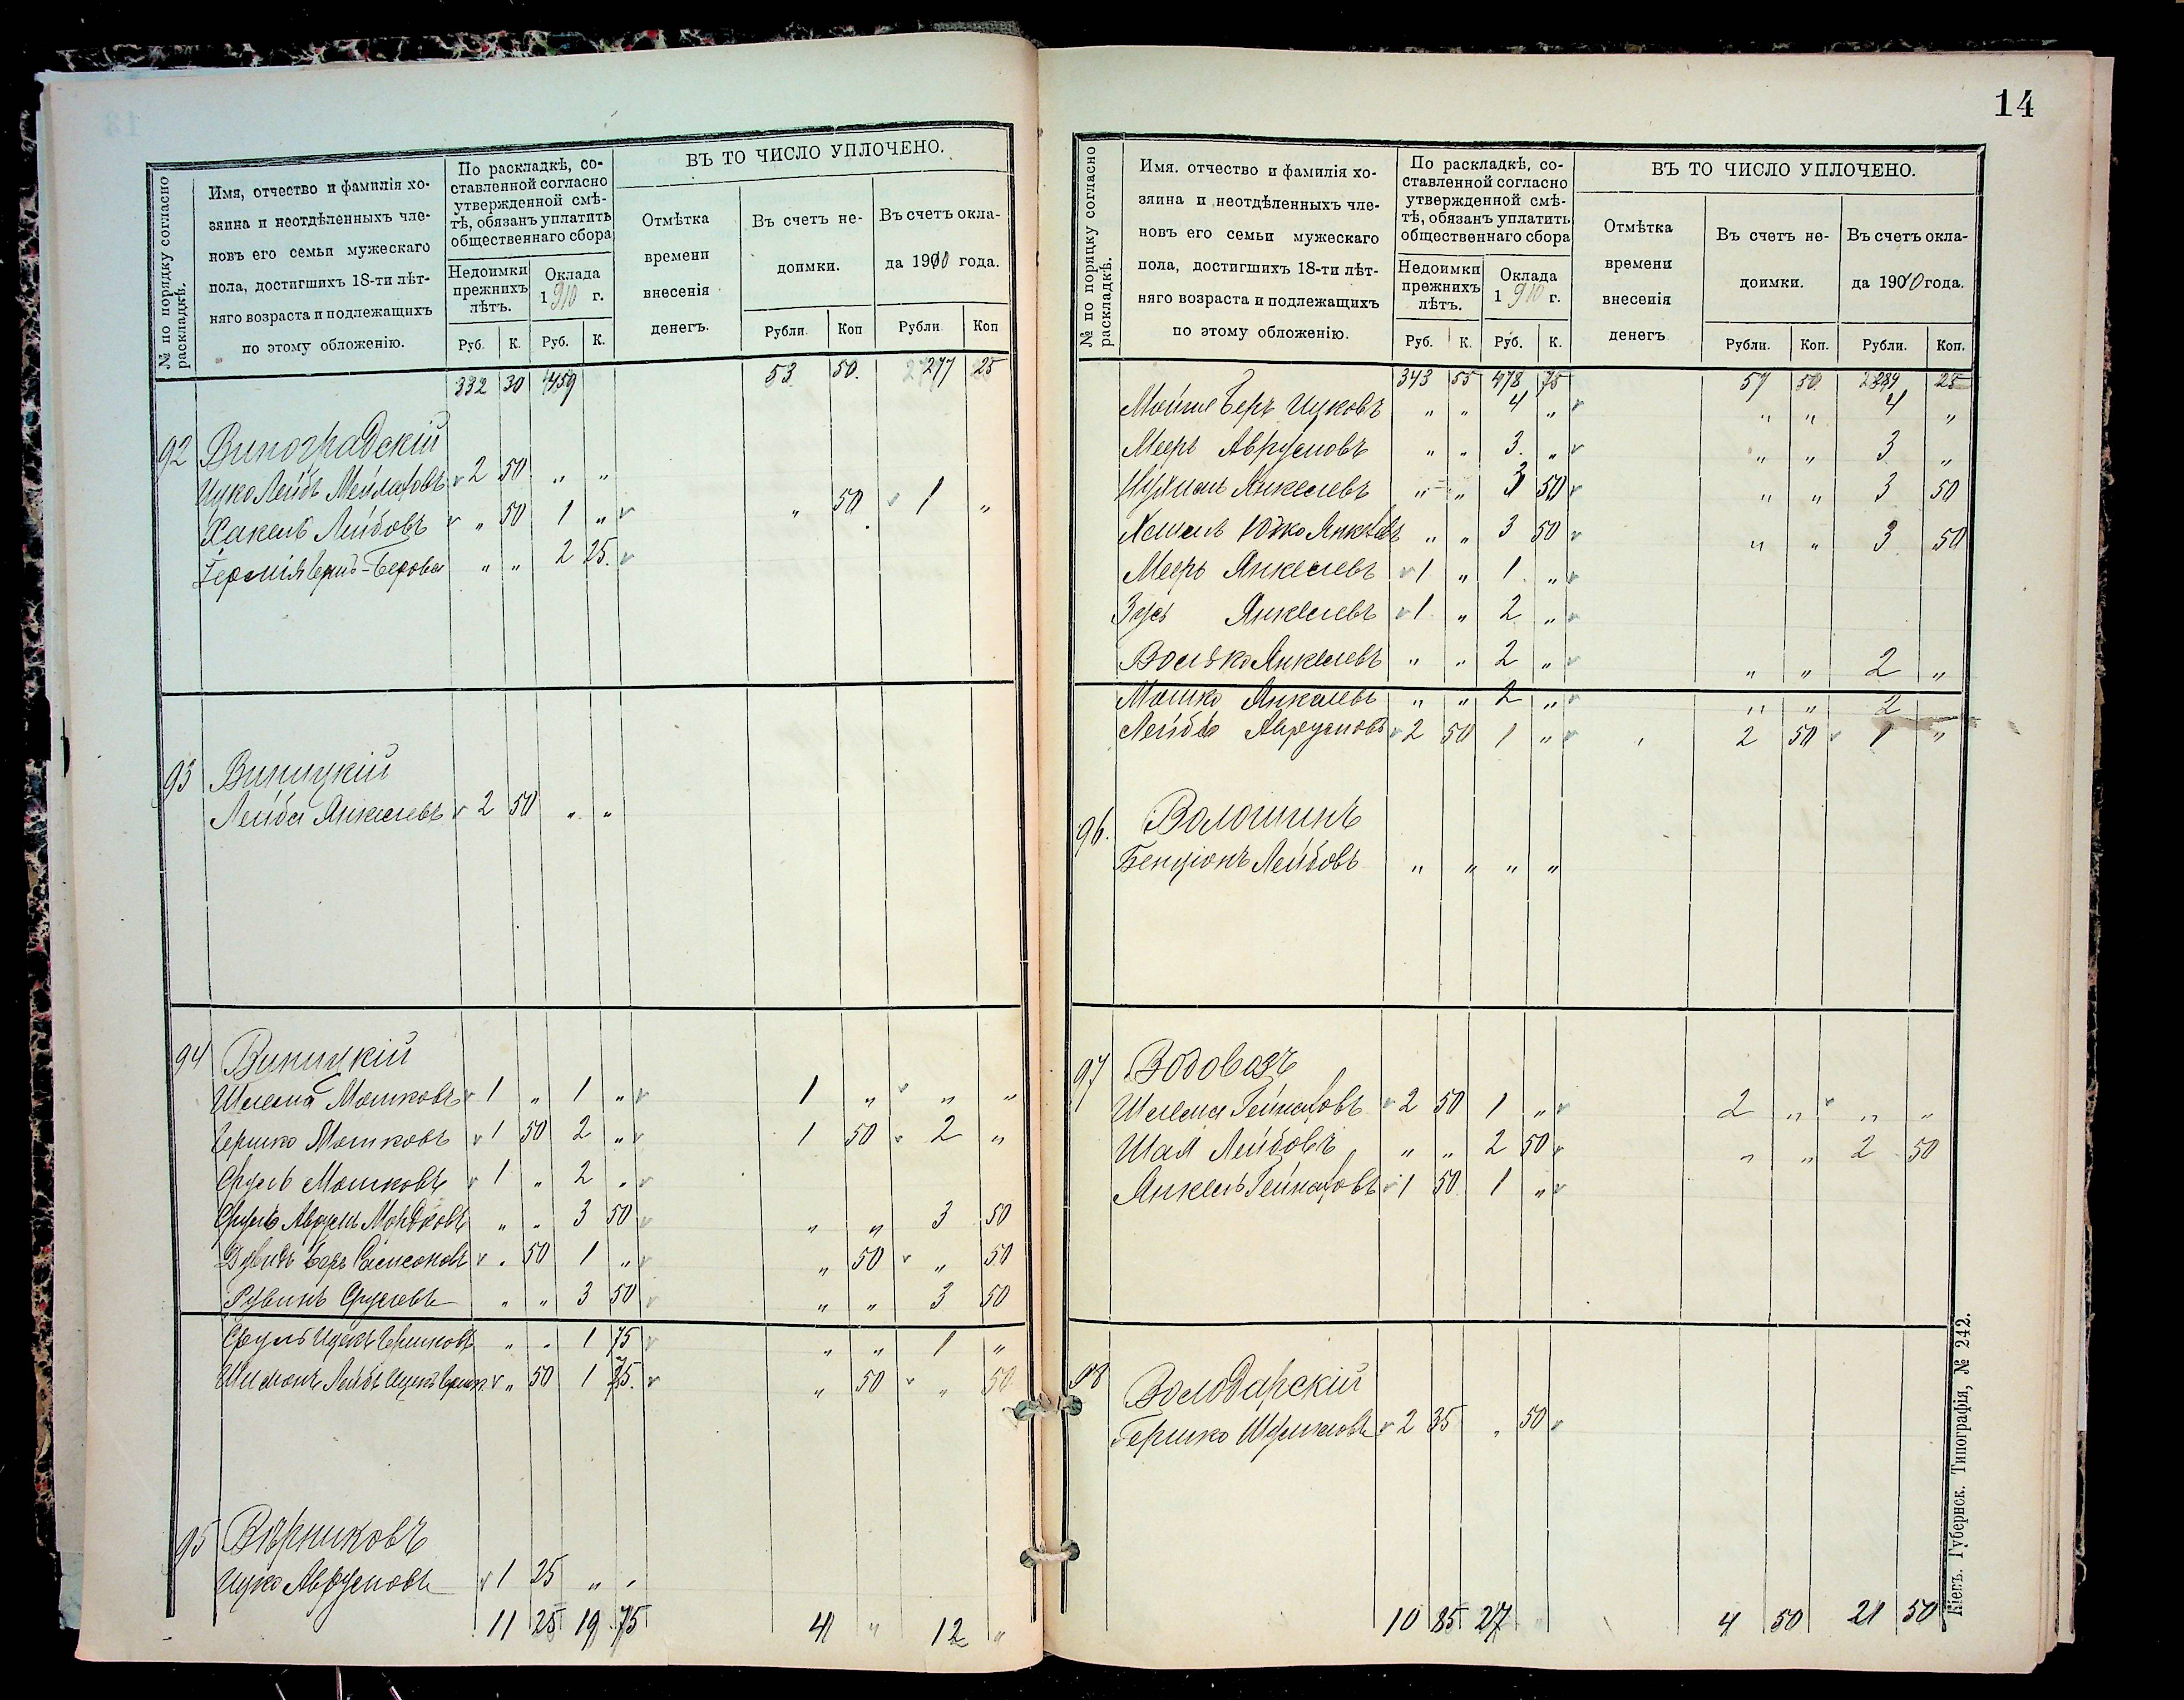 № по порядку согласно раскладкѣ.
Имя, отчество и фамилія хо-
зяина и неотдѣленныхъ чле-
новъ его семьи мужескаго
пола, достигшихъ 18-ти лѣт-
няго возраста и подлежащихъ
по этому обложенію.
По раскладкѣ, со-
ставленной согласно
утвержденной смѣ-
тѣ, обязанъ уплатить
общественнаго сбора
Недоимки прежнихъ лѣтъ.
Оклада 1910 г.
Руб. К. Руб. К.
ВЪ ТО ЧИСЛО УПЛОЧЕНО.
Отмѣтка
времени
внесенія
денегъ.
Въ счетъ не-
доимки.
Въ счетъ окла-
да 1910 года.
Рубли. Коп Рубли Коп
332 30 459 53 50. 277 25
92 Виноградскій
Ицко Лейбъ 2 50 „ „
Хакель Лейбовъ „ 50 1 „ „ 50 1 „
„ „ 2 25.
93 Виницкій
Лейба Янкелевъ 2 50 „ „
94 Виницкій
Шлема Мошковъ 1 „ 1 „ 1 „ „ „
Гершко Мошковъ 1 50 2 „ 1 50 2 „
Сруль Мошковъ 1 „ 2 „
Сруль Аврумъ Мордковъ „ „ 3 50 „ „ 3 50
Дувидъ Беръ „ 50 1 „ „ 50 „ 50
Рувинъ Срулевъ „ „ 3 50 „ „ 3 50
Сруль Ицекъ Гершковъ „ „ 1 75 „ „ 1 „
Шимонъ Лейбъ „ 50 1 25. „ 50 „ 50
95 Вѣрниковъ
Ицко Аврумовъ 1 25 „ „
11 25 19 75 4 „ 12 „
14
№ по порядку согласно раскладкѣ.
Имя. отчество и фамилія хо-
зяина и неотдѣленныхъ чле-
новъ его семьи мужескаго
пола, достигшихъ 18-ти лѣт-
няго возраста и подлежащихъ
по этому обложенію.
По раскладкѣ, со-
ставленной согласно
утвержденной смѣ-
тѣ, обязанъ уплатить
общественнаго сбора
Недоимки прежнихъ лѣтъ.
Оклада 1910 г.
Руб. К. Руб. К.
ВЪ ТО ЧИСЛО УПЛОЧЕНО.
Отмѣтка
времени
внесенія
денегъ
Въ счетъ не-
доимки.
Въ счетъ окла-
да 1910 года.
Рубли. Коп. Рубли. Коп.
343 55 478 75 57 50 289 25
Мойше Беръ Ицковъ „ „ 4 „ „ „ 4 „
Мееръ Аврумовъ „ „ 3. „ „ „ 3 „
Нухимъ Янкелевъ „ „ 3 50 „ „ 3 50
Юдко Янкелевъ „ „ 3 50 „ „ 3 50
Мееръ Янкелевъ 1 „ 1 „
Зусь Янкелевъ 1 „ 2 „
Волько Янкелевъ „ „ 2 „ „ „ 2 „
Мошко Янкелевъ „ „ 2 „ „ „ 2
Лейба Аврумовъ 2 50 1 „ 2 50 1 „
96. Волошинъ
Бенціонъ Лейбовъ „ „ „ „
97 Водовозъ
Шлема 2 50 1 „ 2 „ „ „
Шая Лейбовъ „ „ 2 50 „ „ 2 50
Янкель 1 50 1 „
98 Володарскій
Гершко Шулимовъ 2 35 „ 50
10 85 27 4 50 21 50
Кіевъ. Губернск. Типографія, № 242.